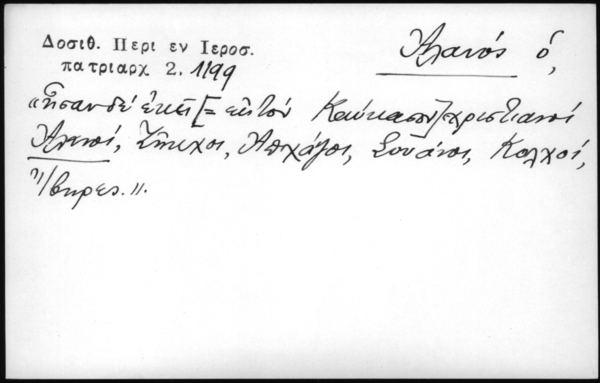 Δοσιθ. Περι εν Ιεροσ.
πατριαρχ 2. 1199
Ἀλανός ὁ,
«Ἦσαν δέ ἐκεῖ [= εἰς τόν Καύκασον] χριστιανοί
Ἀλανοί, Ζῆκχοι, Ἀπχάζοι, Σουάνοι, Κολχοί,
Ἴβηρες.»